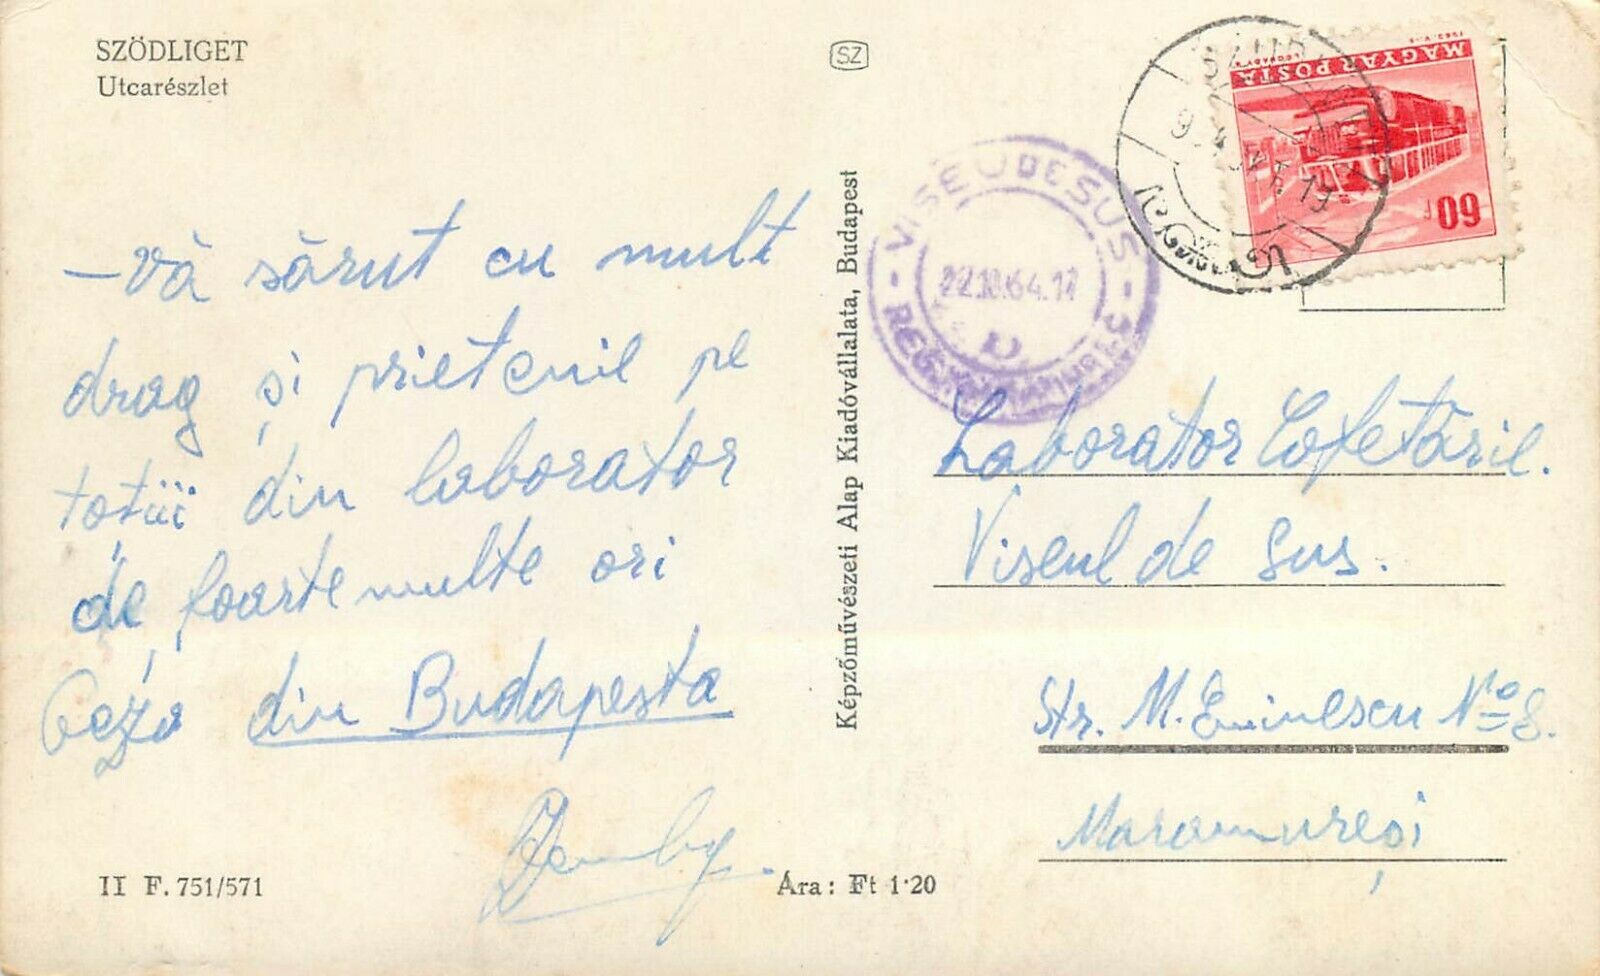 SZÖDLIGET
Utcarészlet
SZ
MAGYAR POSTA
60f
VISEU DE SUS
22.10.64.17
– Vă sărut cu mult
drag și prietenil pe
totüi din laborator
de foarte multe ori
Geza din Budapesta
II F. 751/571
Ára: Ft 1·20
Képzőművészeti Alap Kiadóvállalata, Budapest
Laborator Cofetăril.
Viseul de Sus.
Str. M. Eminescu No 8.
Maramureși